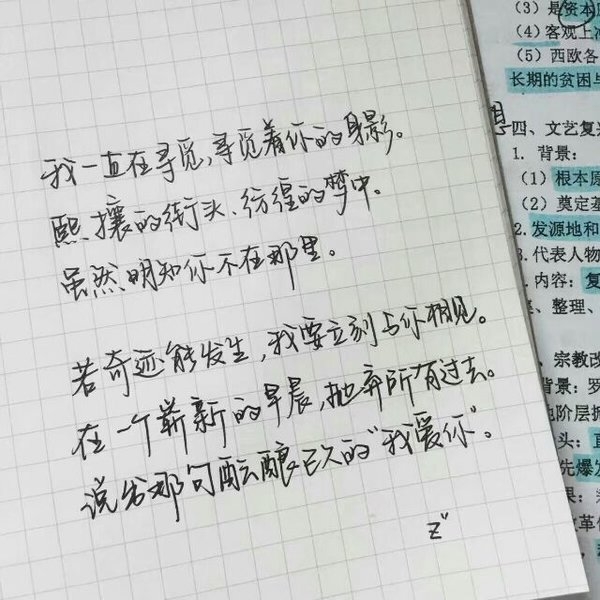 我一直在寻觅,寻觅着你的身影。
熙攘的街头、彷徨的梦中。
虽然明知你不在那里。
若奇迹能发生,我要立刻与你相见。
在一个崭新的早晨,抛弃所有过去。
说出那句酝酿已久的"我爱你"。
z"
(3)是资本
(4)客观上
(5)西欧各
长期的贫困与
四、文艺复
1. 背景:
(1)根本原
(2)奠定基
2.发源地和
3.代表人物
内容:复
、整理、
、宗教改
背景:罗
地阶层拥
头:直
先爆发
果:
改革使